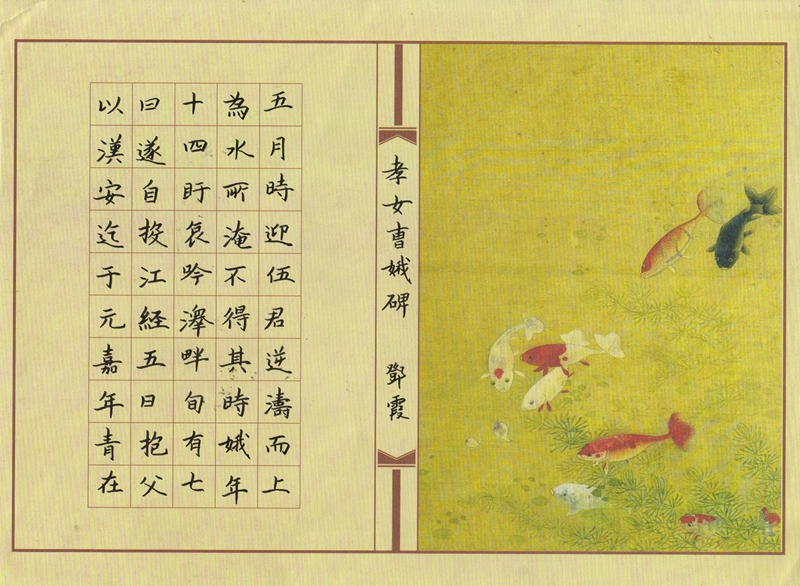 孝女曹娥碑 鄧霞
五月時迎伍君逆濤而上
為水所淹不得其時娥年
十四盱哀吟澤畔旬有七
日遂自投江経五日抱父
以漢安迄于元嘉年青在